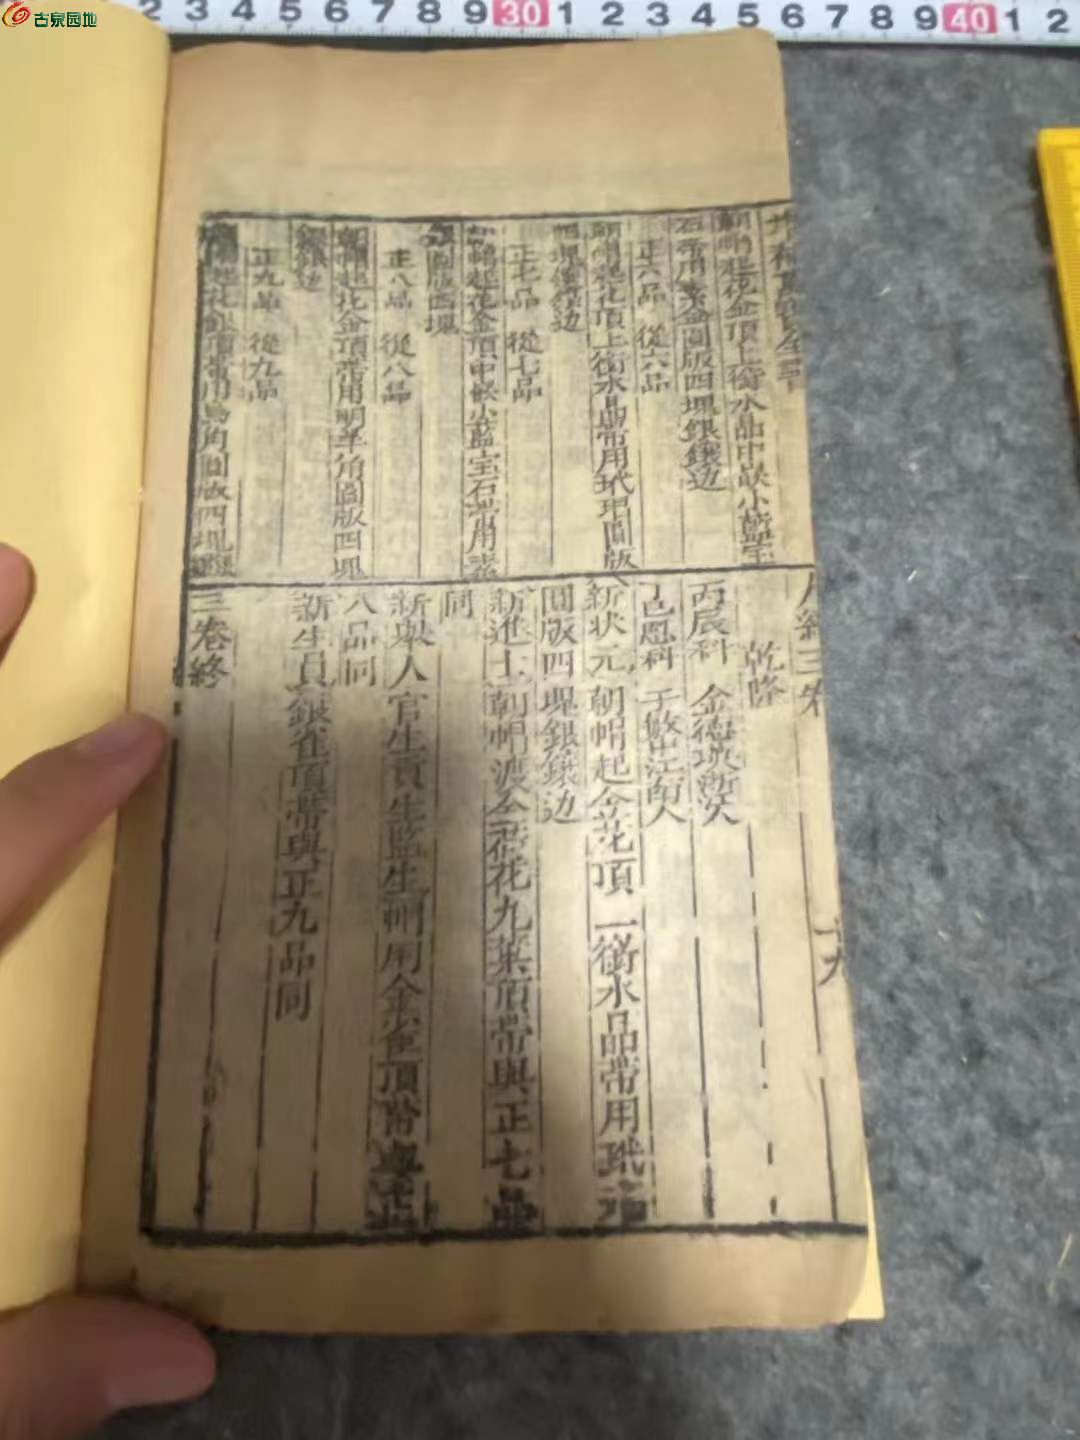 古泉园地
2 3 4 5 6 7 8 9 30 1 2 3 4 5 6 7 8 9 40 1 2
朝帽起花金頂上銜水晶中嵌小藍宝
石帶用素金圓版四塊銀鑲边
正六品 從六品
朝帽起花頂上銜水晶帶用玳瑁圓版
四塊銀鑲边
正七品 從七品
朝帽起花金頂中嵌小藍宝石帶用素
圓版四塊
正八品 從八品
朝帽起花金頂帶用明羊角圓版四塊
銀鑲边
正九品 從九品
朝帽起花銀頂帶用烏角圓版四塊銀
三卷
十九
乾隆
丙辰科 金德瑛浙人
丁巳恩科 于敏中江南人
新状元 朝帽起金花頂 一銜水品帶用玳
圓版四塊銀鑲边
新進士 朝帽渡金花九葉頂帶與正七品
同
新舉人官生貢生監生帽用金雀頂帶與正
八品同
新生員銀雀頂帶與正九品同
三卷終